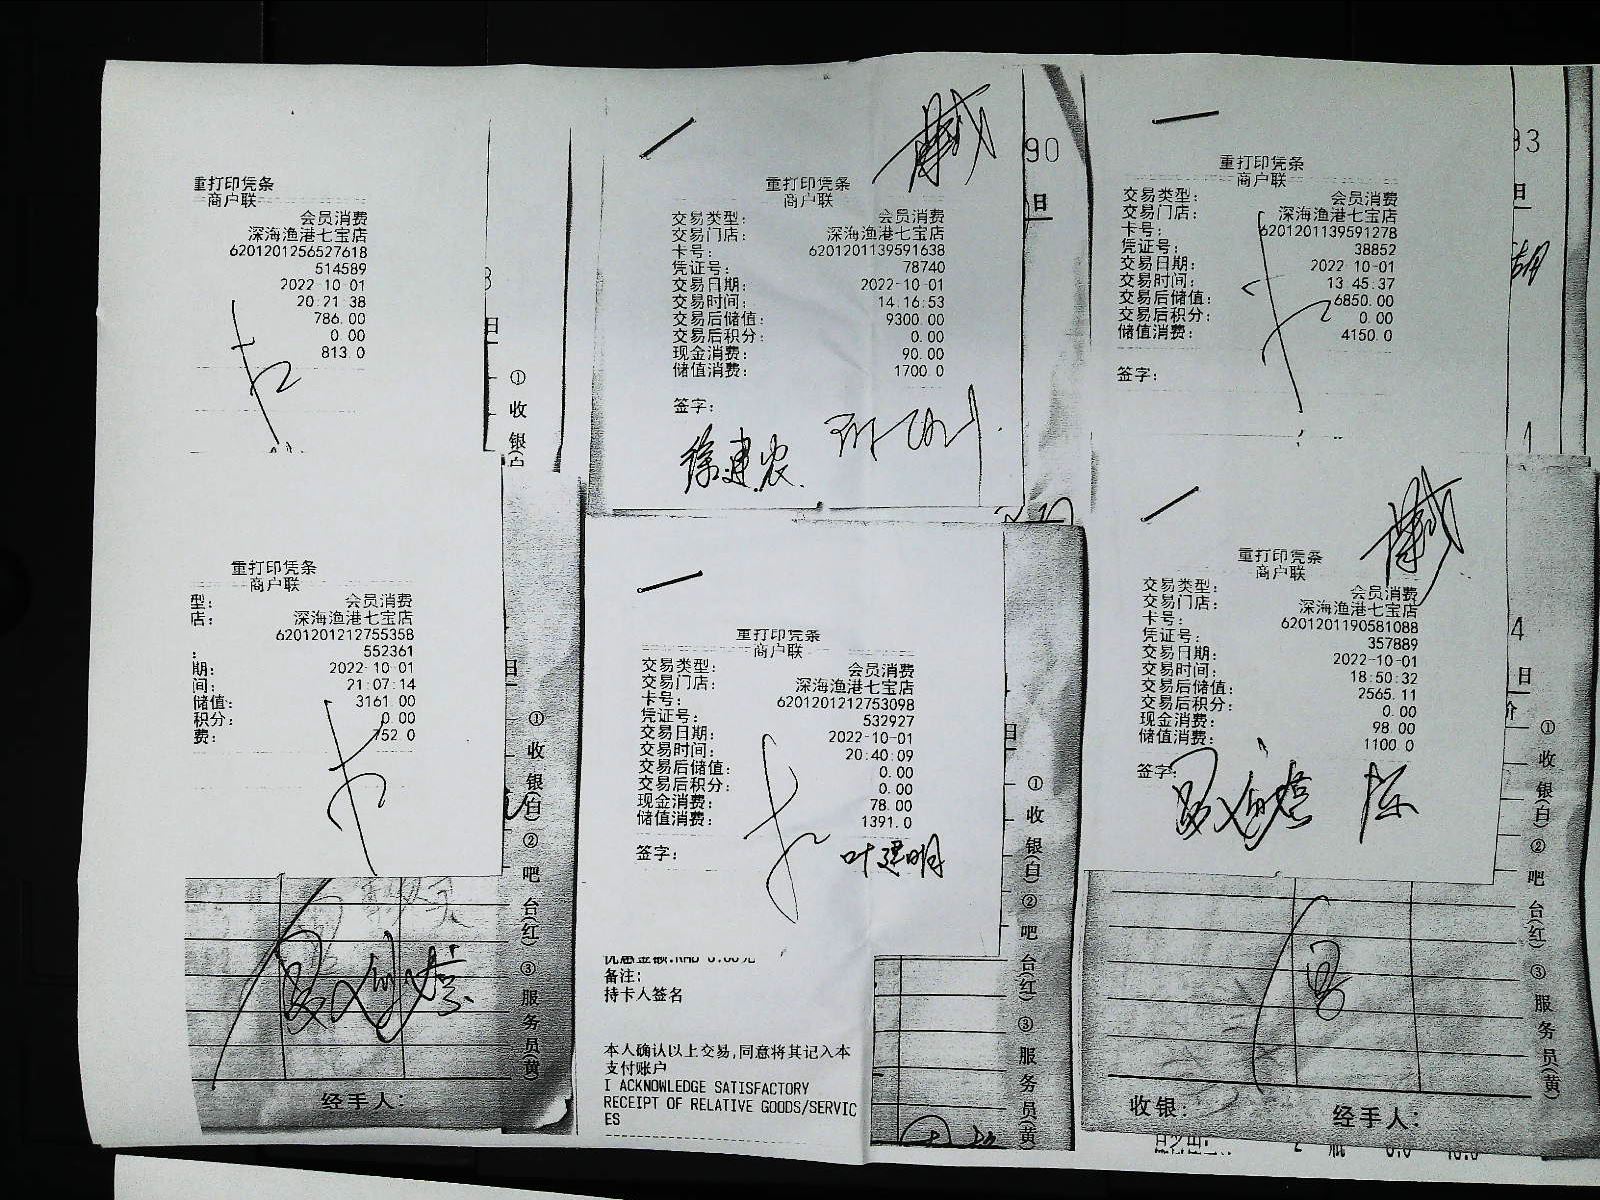 重打印凭条
商户联
会员消费
深海渔港七宝店
6201201256527618
514589
2022-10-01
20:21:38
786.00
0.00
813.0
①
收
银(白
重打印凭条
商户联
交易类型: 会员消费
交易门店: 深海渔港七宝店
卡号: 6201201139591638
凭证号: 78740
交易日期: 2022-10-01
交易时间: 14:16:53
交易后储值: 9300.00
交易后积分: 0.00
现金消费: 90.00
储值消费: 1700.0
签字:
徐建农
90
日
重打印凭条
商户联
交易类型: 会员消费
交易门店: 深海渔港七宝店
卡号: 6201201139591278
凭证号: 38852
交易日期: 2022-10-01
交易时间: 13:45:37
交易后储值: 6850.00
交易后积分: 0.00
储值消费: 4150.0
签字:
93
日
重打印凭条
商户联
型: 会员消费
店: 深海渔港七宝店
6201201212755358
: 552361
期: 2022-10-01
间: 21:07:14
储值: 3161.00
积分: 0.00
费: 752.0
日
①收银(白)②吧台(红)③服务员(黄)
经手人:
重打印凭条
商户联
交易类型: 会员消费
交易门店: 深海渔港七宝店
卡号: 6201201212753098
凭证号: 532927
交易日期: 2022-10-01
交易时间: 20:40:09
交易后储值: 0.00
交易后积分: 0.00
现金消费: 78.00
储值消费: 1391.0
签字:
叶建明
备注:
持卡人签名
本人确认以上交易,同意将其记入本
支付账户
I ACKNOWLEDGE SATISFACTORY
RECEIPT OF RELATIVE GOODS/SERVIC
ES
日
①收银(白)②吧台(红)③服务员(黄)
重打印凭条
商户联
交易类型: 会员消费
交易门店: 深海渔港七宝店
卡号: 6201201190581088
凭证号: 357889
交易日期: 2022-10-01
交易时间: 18:50:32
交易后储值: 2565.11
交易后积分: 0.00
现金消费: 98.00
储值消费: 1100.0
签字:
4
日
价
①收银(白)②吧台(红)③服务员(黄)
收银: 经手人: